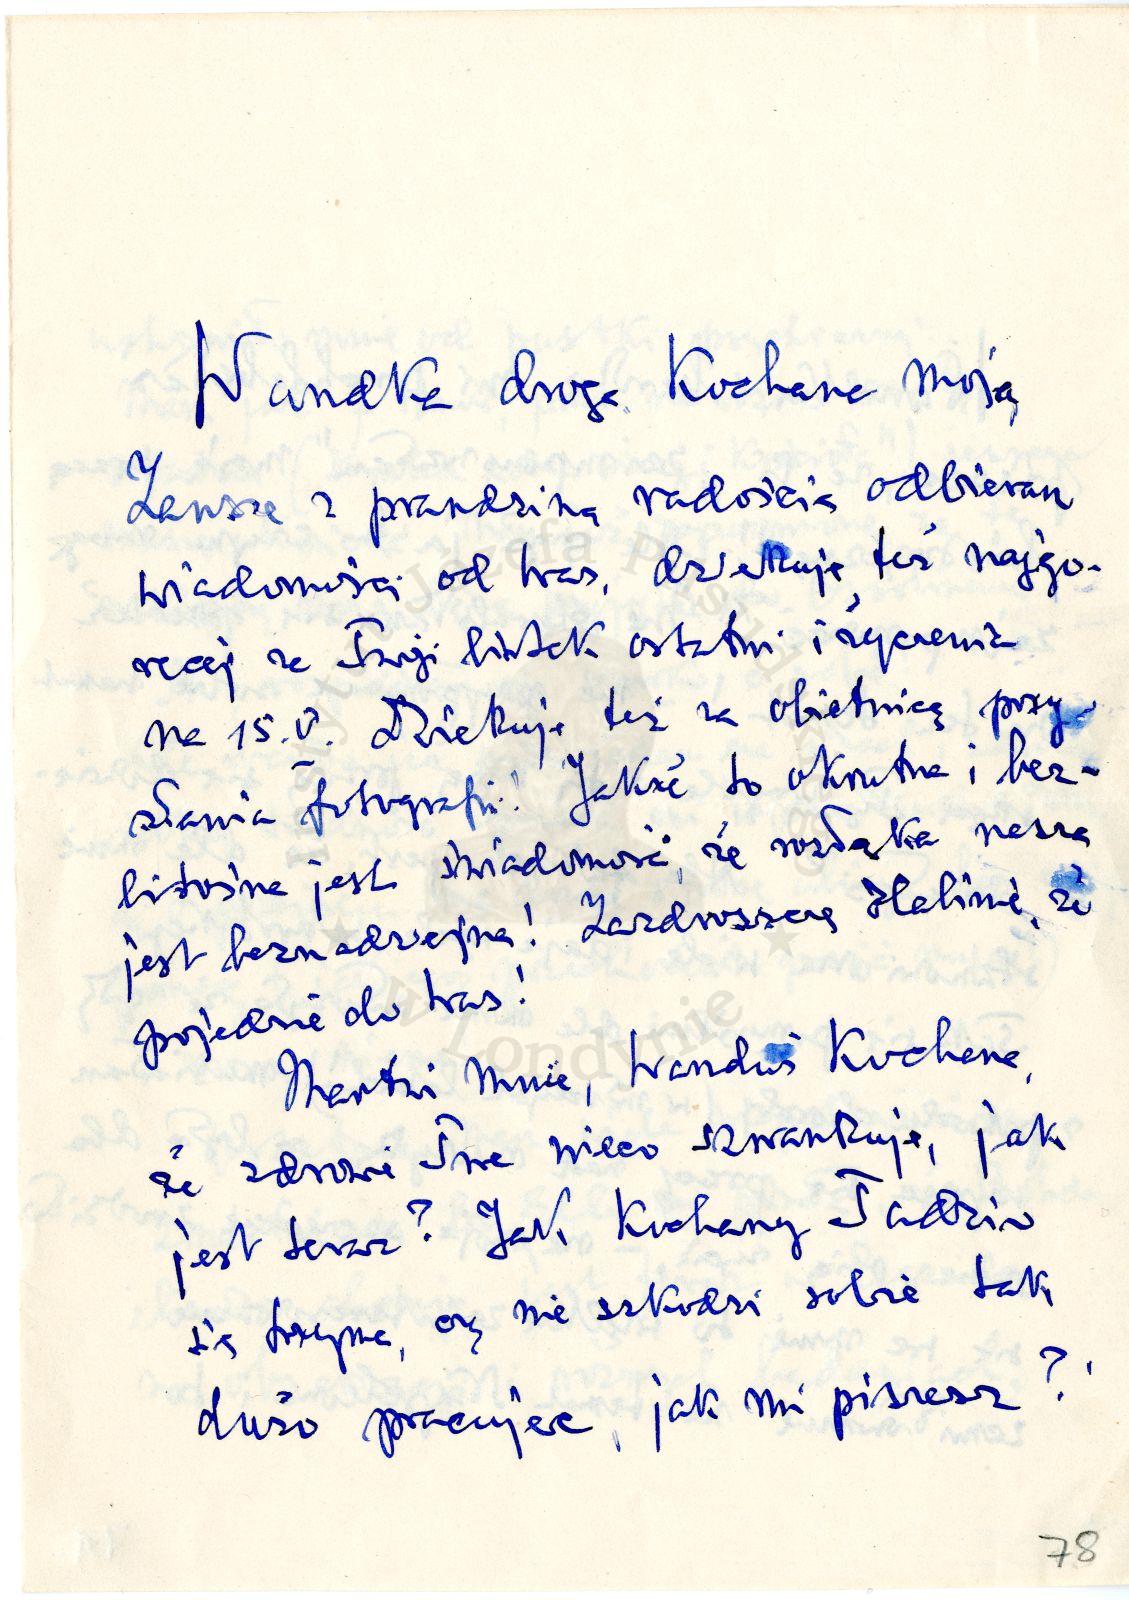 Wandka droga Kochana Moja
Zawsze z prawdziwą radością odbieram
wiadomości od Was, dziekuję też najgo-
ręcej za Twój listek ostatni i życzenia
na 15.V. Dziekuję też za obietnicę przy-
słania fotografii! Jakże to okrutna i bez-
litośna jest świadomość, że rozłąka nasza
jest beznadziejna! Zazdroszczę Halinie, że
pojedzie do Was!
Martwi mnie, Wanduś Kochana,
że zdrowie Twe nieco szwankuje, jak
jest teraz? Jak Kochany Tadzio
się trzyma, czy nie szkodzi sobie tak
dużo pracując, jak mi piszesz?
78
Instytut Józefa Piłsudskiego
w Londynie